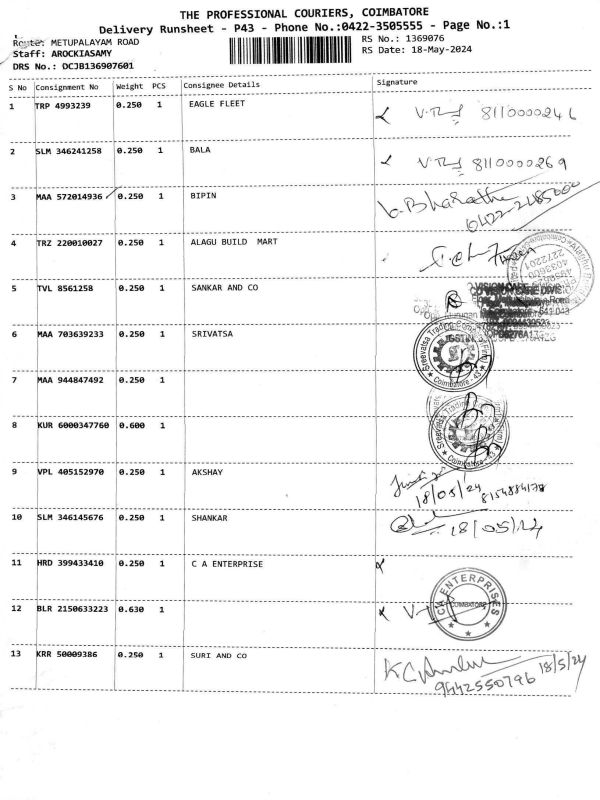 THE PROFESSIONAL COURIERS, COIMBATORE
Delivery Runsheet - P43 - Phone No.:0422-3505555 - Page No.:1
Route: METUPALAYAM ROAD
RS No.: 1369076
Staff: AROCKIASAMY
RS Date: 18-May-2024
DRS No.: DCJB136907601
S No Consignment No Weight PCS Consignee Details Signature
1 TRP 4993239 0.250 1 EAGLE FLEET 8110000246
2 SLM 346241258 0.250 1 BALA 8110000269
3 MAA 572014936 0.250 1 BIPIN b.Bharathe
0422-2485000
4 TRZ 220010027 0.250 1 ALAGU BUILD MART
2272201
5 TVL 8561258 0.250 1 SANKAR AND CO
6 MAA 703639233 0.250 1 SRIVATSA
Sreevatsa Trading Company
Coimbatore - 43
7 MAA 944847492 0.250 1
8 KUR 6000347760 0.600 1
Sreevatsa Trading
Coimbatore - 43
9 VPL 405152970 0.250 1 AKSHAY
18/05/24 8154884178
10 SLM 346145676 0.250 1 SHANKAR 18/05/24
11 HRD 399433410 0.250 1 C A ENTERPRISE
CA ENTERPRISES
COIMBATORE
12 BLR 2150633223 0.630 1
13 KRR 50009386 0.250 1 SURI AND CO 18/5/24
9442550796